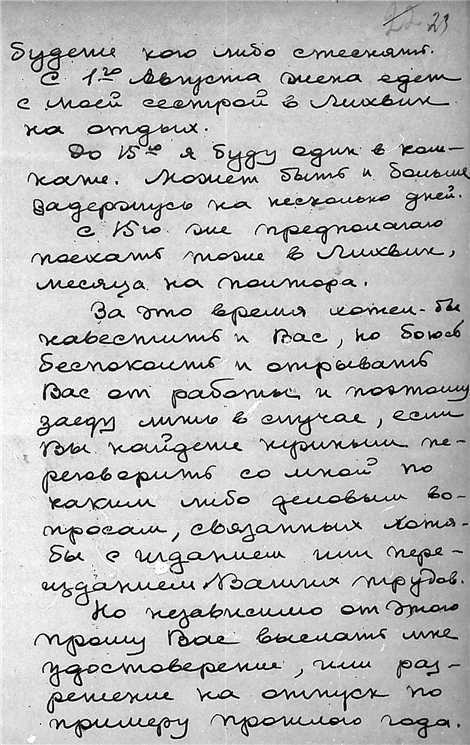 22 23
будете кого либо стеснять.
С 1го Августа жена едет
с моей сестрой в Лихвин
на отдых.
До 15го я буду один в ком-
нате. Может быть и больше
задержусь на несколько дней.
С 15го же предполагаю
поехать тоже в Лихвин,
месяца на полтора.
За это время хотел-бы
навестить и Вас, но боюсь
беспокоить и отрывать
Вас от работы и поэтому
заеду лишь в случае, если
Вы найдете нужным пе-
реговорить со мной по
каким либо деловым во-
просам, связанных хотя-
бы с изданием или пере-
изданием Ваших трудов.
Но независимо от этого
прошу Вас выслать мне
удостоверение, или раз-
решение на отпуск по
примеру прошлого года.